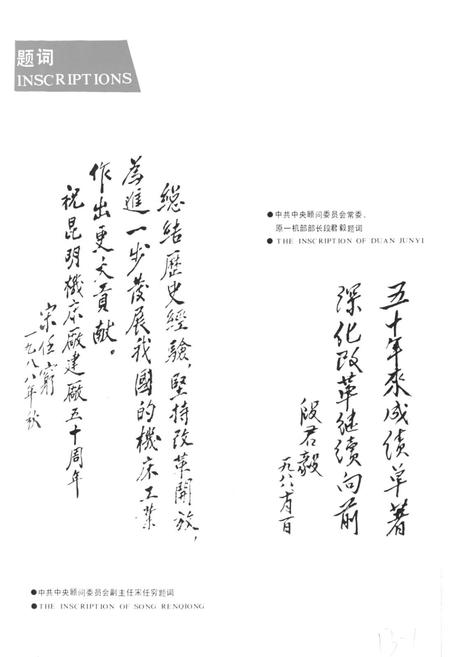 题词
INSCRIPTIONS
总结歷史经驗，堅持改革開放，
為進一步發展我國的機床工業
作出更大貢献。
祝昆明機床廠建廠五十周年
宋任窮
一九八八年秋
●中共中央顾问委员会常委、
原一机部部长段君毅题词
● THE INSCRIPTION OF DUAN JUNYI
五十年來成绩卓著
深化改革继续向前
段君毅
●中共中央顾问委员会副主任宋任穷题词
● THE INSCRIPTION OF SONG RENQIONG
13-1